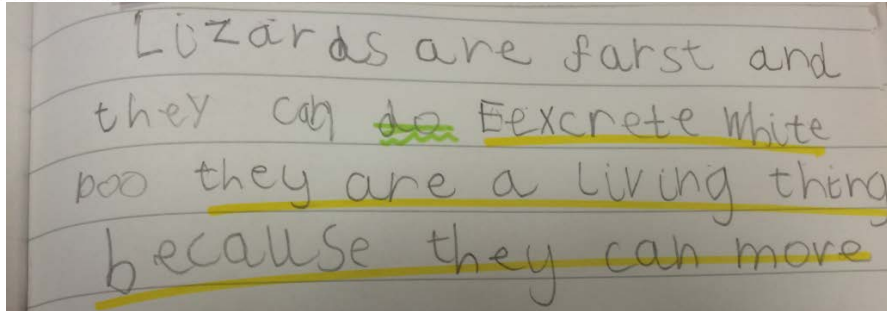 Lizards are farst and
they can do Eexcrete white
poo they are a living thing
because they can move